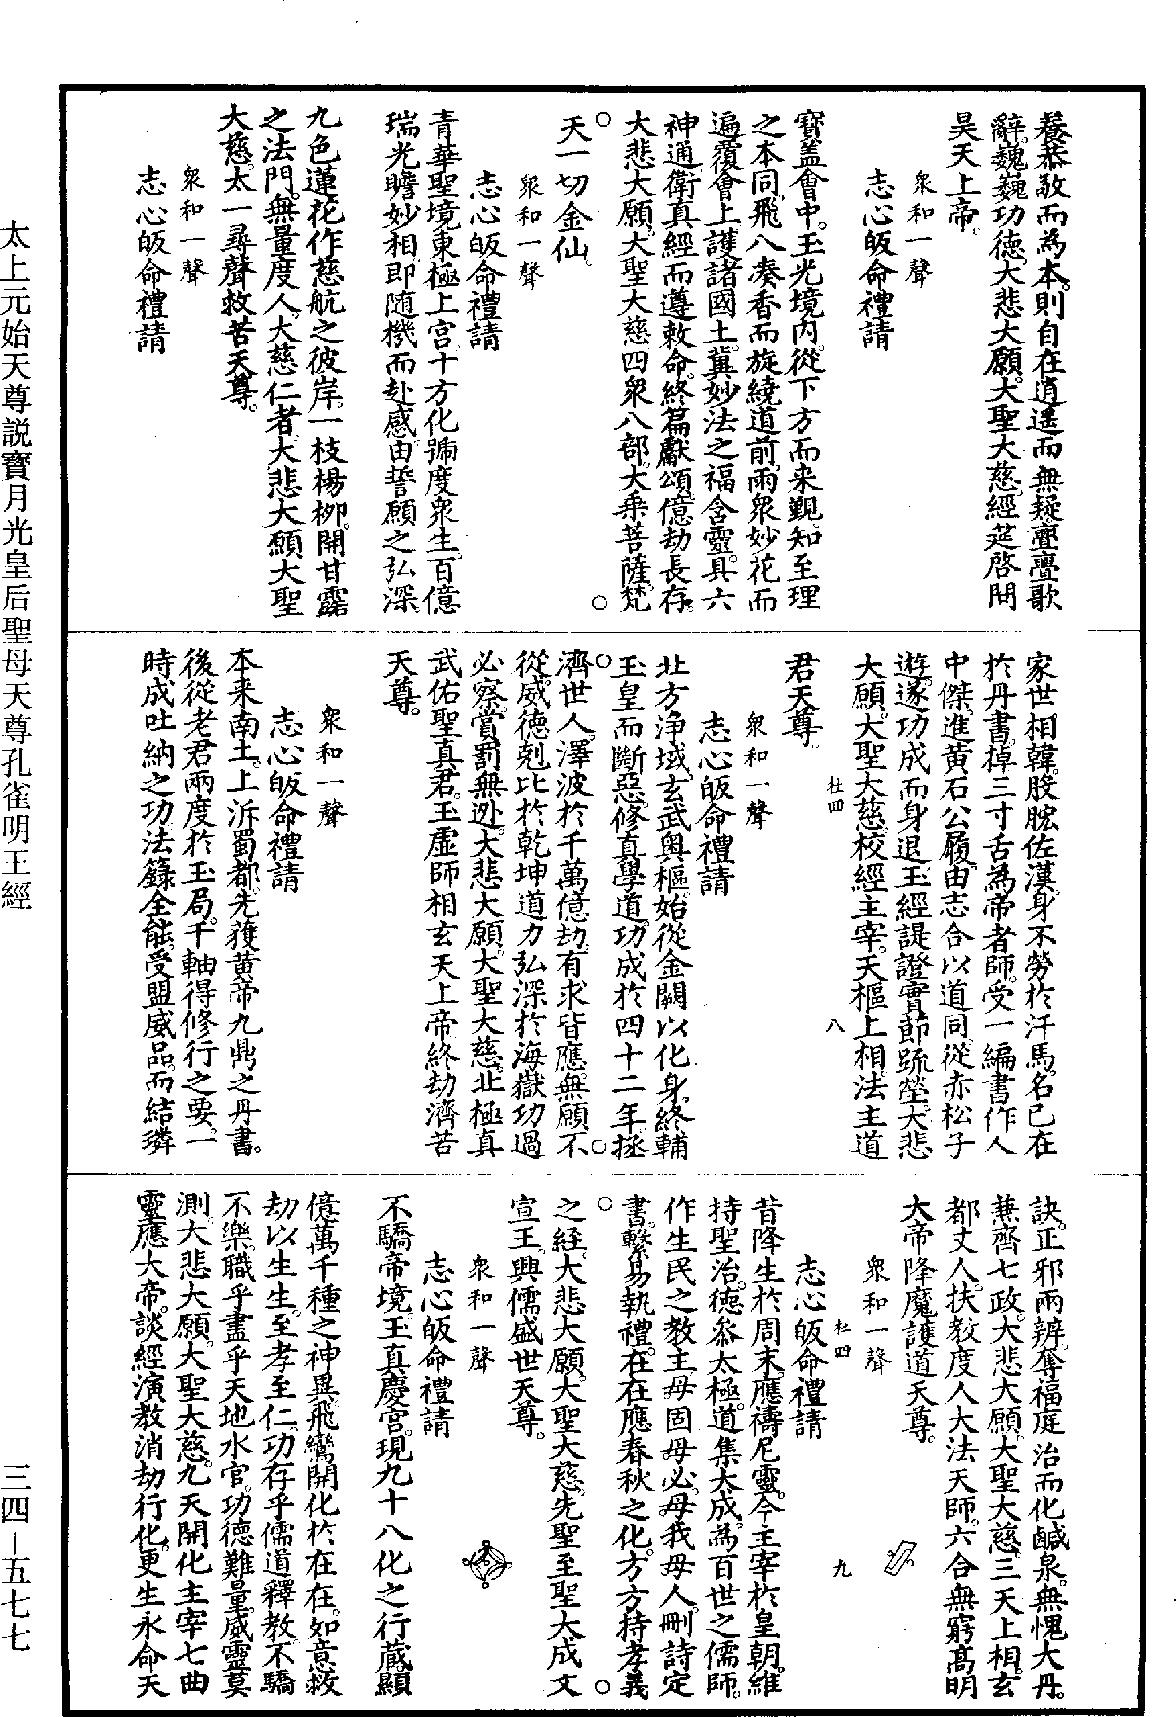 養恭敬而為本則自在逍遥而無疑亹亹歌
辭巍巍功德大悲大願大聖大慈經筵啓問
昊天上帝
衆和一聲
志心皈命禮請
寶盖會中玉光境内從下方而来覲知至理
之本同飛八凑香而旋繞道前雨衆妙花而
遍覆會上護諸國土冀妙法之福含靈具六
神通衛真經而遵敕命終篇獻頌億劫長存
大悲大願大聖大慈四衆八部大乗菩薩梵
天一切金仙
衆和一聲
志心皈命禮請
青華聖境東極上宫十方化號度衆生百億
瑞光瞻妙相即随機而赴感由誓願之弘深
九色蓮花作慈航之彼岸一枝楊柳開甘露
之法門無量度人大慈仁者大悲大願大聖
大慈太一尋聲救苦天尊
衆和一聲
志心皈命禮請
家世相韓股肱佐漢身不勞於汗馬名已在
於丹書掉三寸舌為帝者師受一編書作人
中傑進黄石公履由志合以道同從赤松子
遊遂功成而身退玉經諟證實節䟽瑩大悲
大願大聖大慈校經主宰天樞上相法主道
杜四 八
君天尊
衆和一聲
志心皈命禮請
北方浄域玄武奥樞始從金闕以化身終輔
玉皇而斷惡修真學道功成於四十二年拯
濟世人澤波於千萬億劫有求皆應無願不
從威德剋比於乾坤道力弘深於海嶽功過
必察賞罰無迯大悲大願大聖大慈北極真
武佑聖真君玉虚師相玄天上帝終劫濟苦
天尊
衆和一聲
志心皈命禮請
本来南土上泝蜀都先獲黄帝九鼎之丹書
後從老君兩度於玉局千軸得修行之要一
時成吐納之功法籙全能受盟威品而結璘
訣正邪兩辨奪福庭治而化鹹泉無愧大丹
兼齊七政大悲大願大聖大慈三天上相玄
都丈人扶教度人大法天師六合無窮髙明
大帝降魔護道天尊
衆和一聲
杜四 九
志心皈命禮請
昔降生於周末應禱尼靈今主宰於皇朝維
持聖治德叅太極道集大成為百世之儒師
作生民之教主毋固毋必毋我毋人刪詩定
書繫易執禮在在應春秋之化方方持孝義
之經大悲大願大聖大慈先聖至聖大成文
宣王興儒盛世天尊
衆和一聲
志心皈命禮請
不驕帝境玉真慶宫現九十八化之行蔵顯
億萬千種之神異飛鸞開化於在在如意救
劫以生生至孝至仁功存乎儒道釋教不驕
不樂職乎盡乎天地水官功德難量威靈莫
測大悲大願大聖大慈九天開化主宰七曲
靈應大帝談經演教消劫行化更生永命天
太上元始天尊説寶月光皇后聖母天尊孔雀明王經
三四—五七七